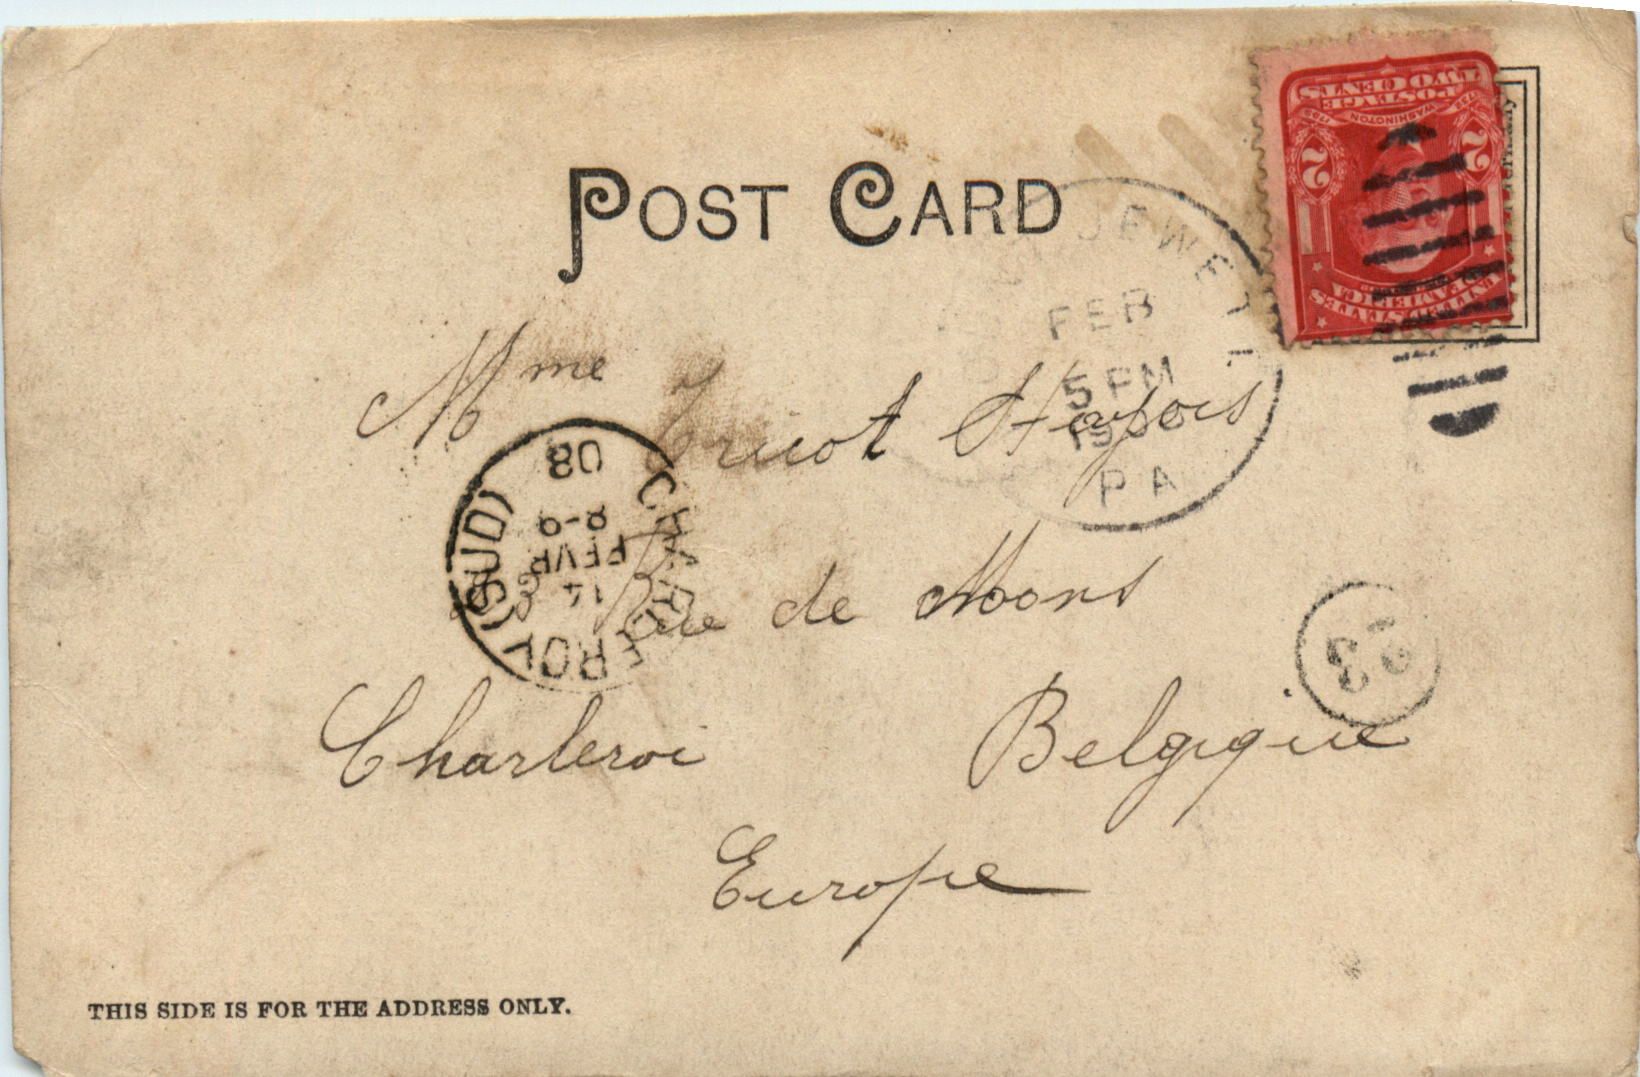 POST CARD
TWO CENTS
POSTAGE
WASHINGTON
1732 1799
2 2
UNITED STATES
OF AMERICA
Germany
JEWETT
FEB
5 PM
PA
Mme Tricot Hapois
Rue de Mons
Charleroi Belgique
Europe
CHARLEROI (SUD)
14
FEVR
8-9
08
23
THIS SIDE IS FOR THE ADDRESS ONLY.